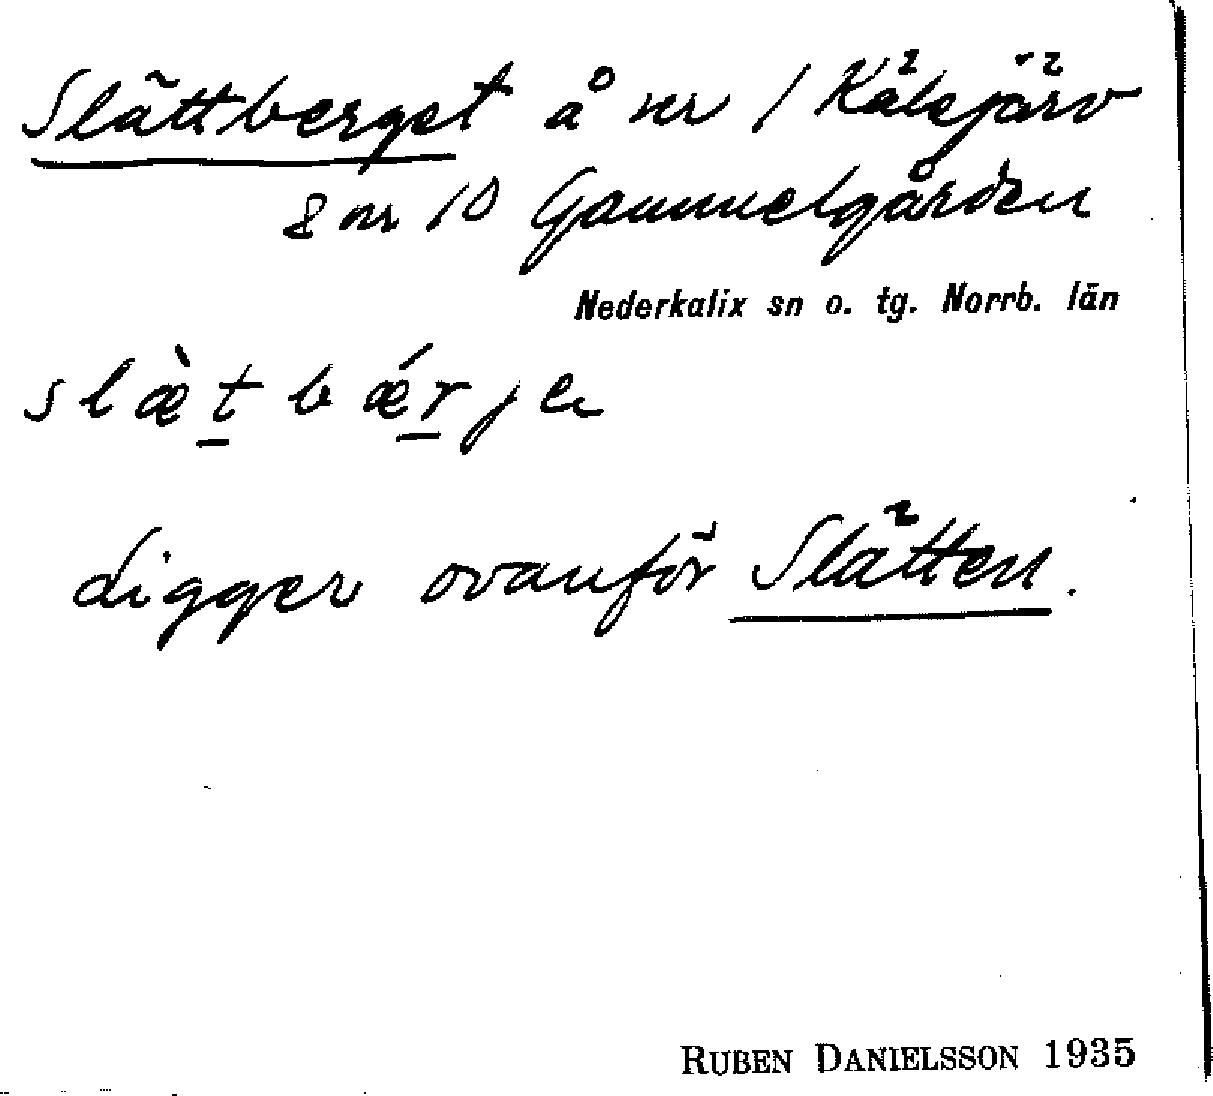 Slättberget å nr 1 Kälsjärv
& nr 10 Gammelgården
Nederkalix sn o. tg. Norrb. län
slæ̀t̠bǽr̠je
Ligger ovanför Slätten.
RUBEN DANIELSSON 1935